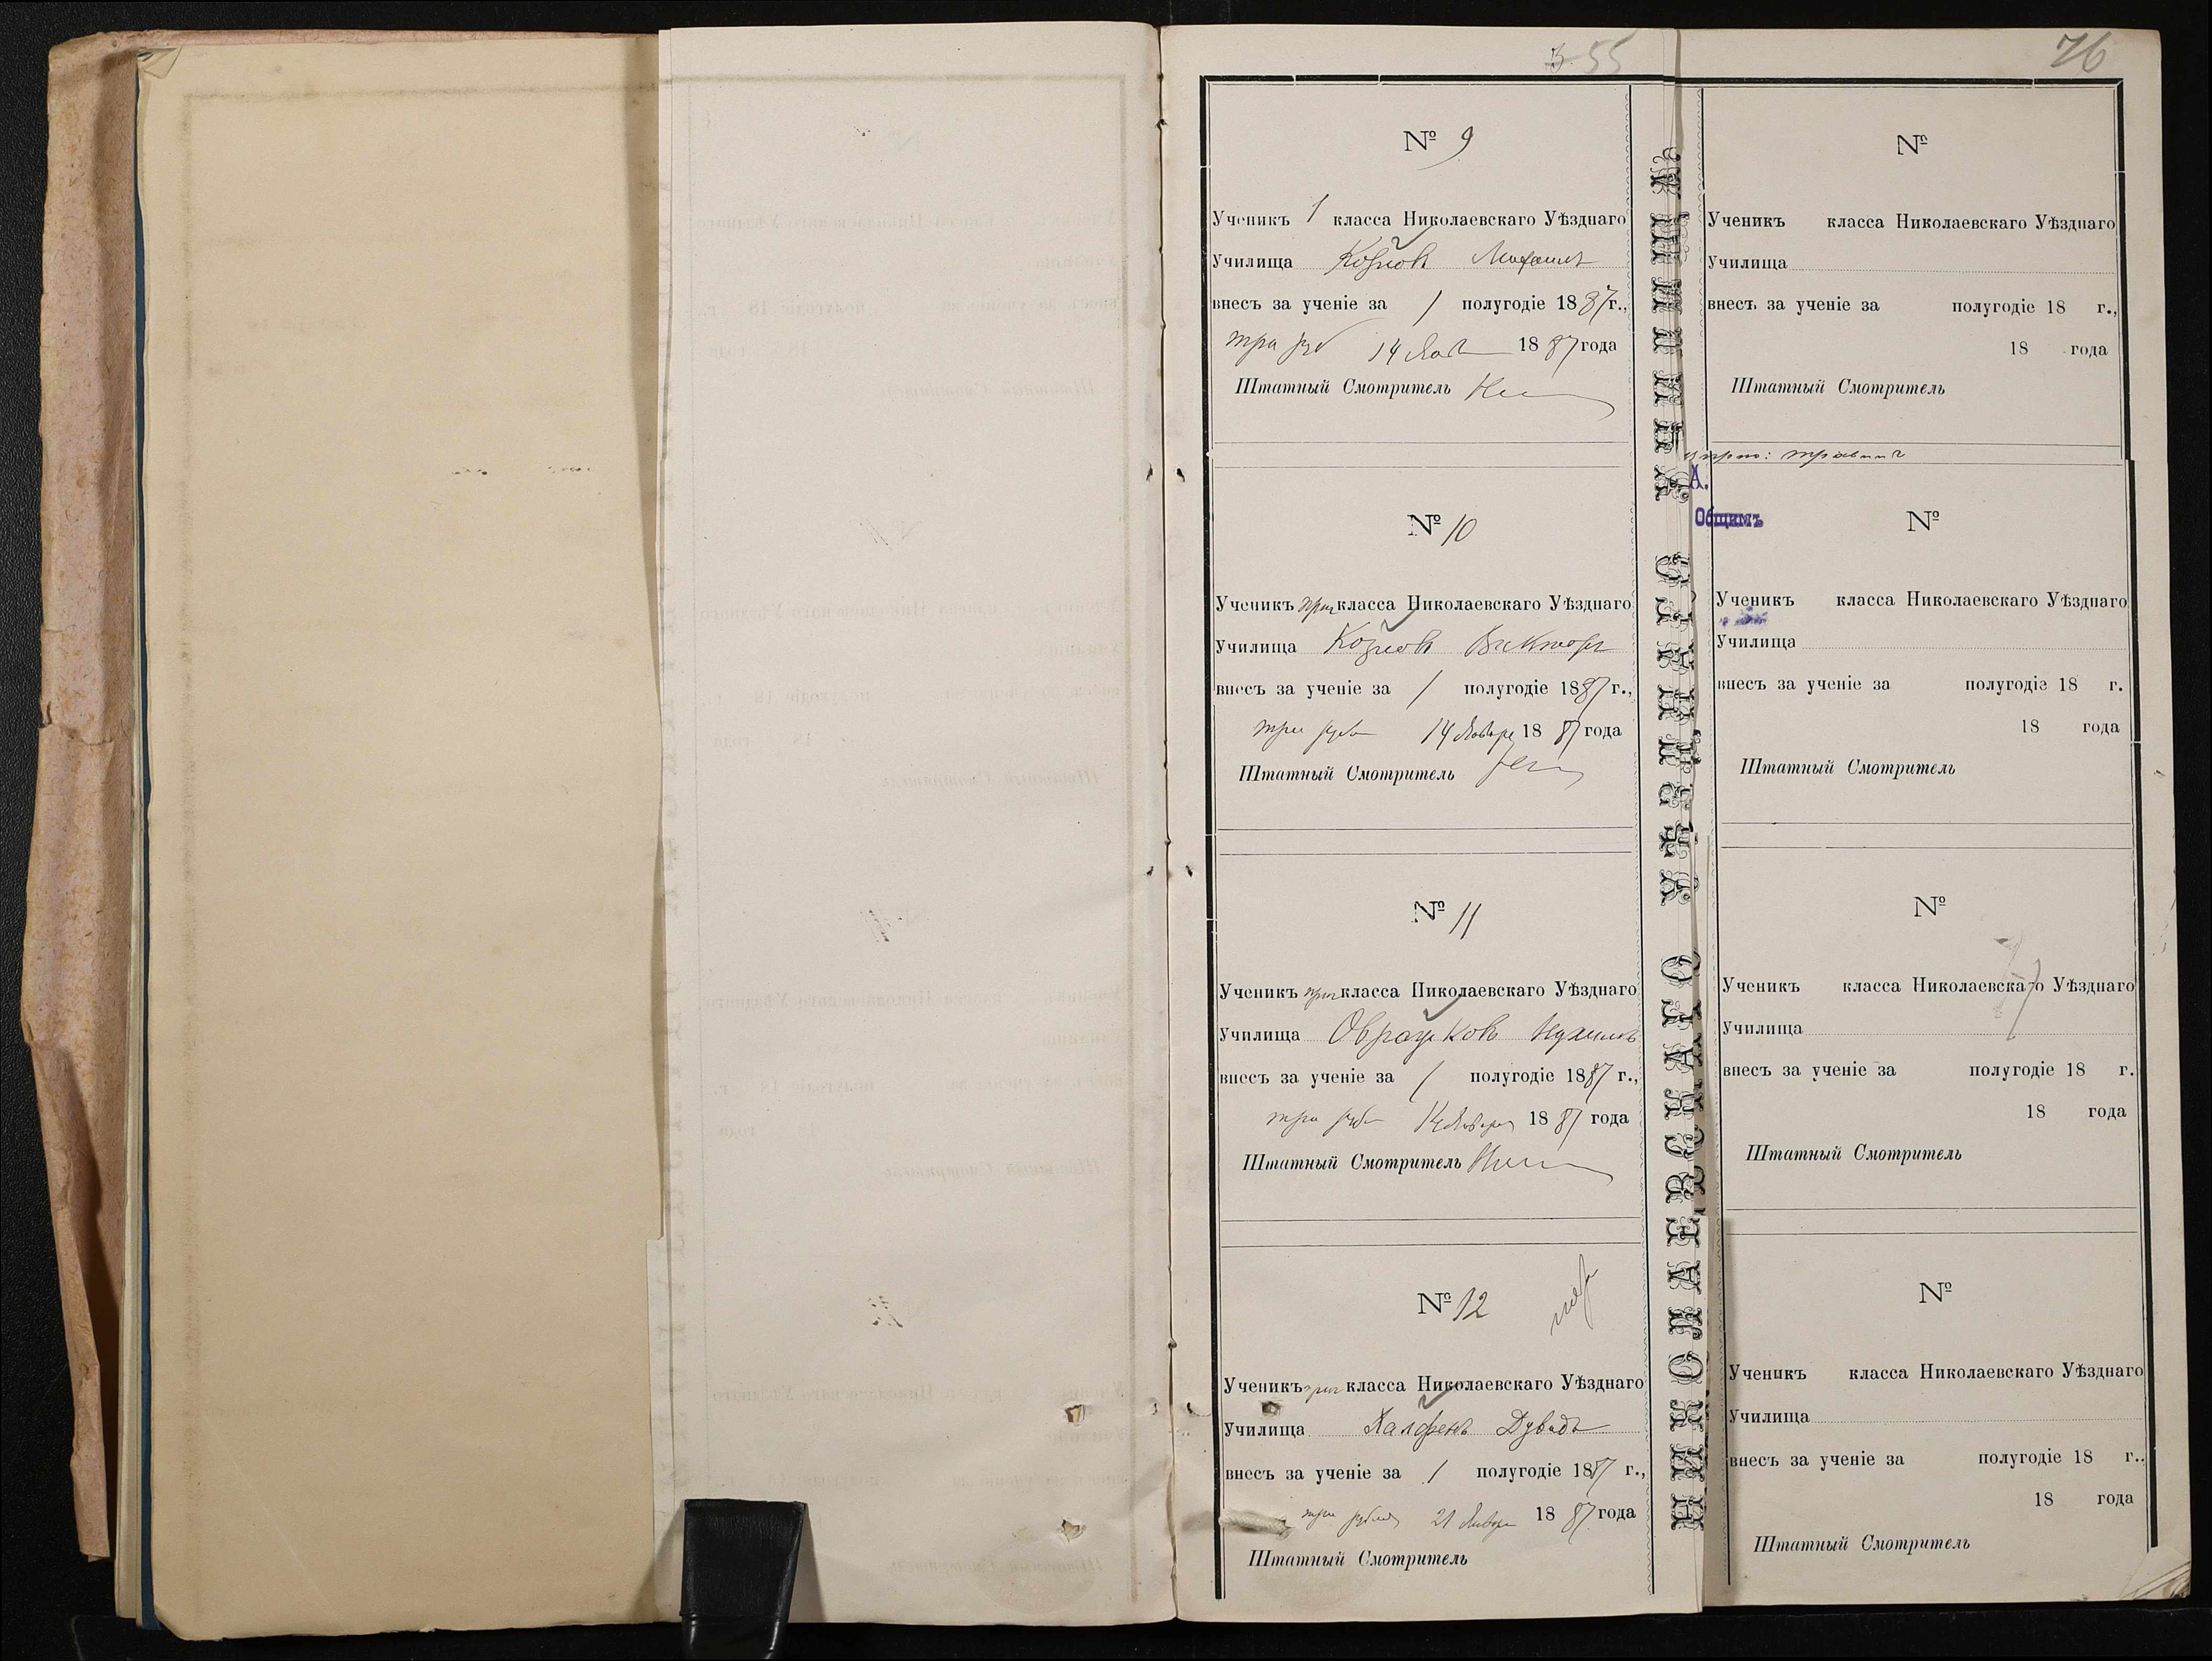 55
76
№ 9
Ученикъ 1 класса Николаевскаго Уѣзднаго
Училища Козловъ Михаилъ
внесъ за ученіе за 1 полугодіе 1887 г.,
три руб 14 Янв 1887 года
Штатный Смотритель
№ 10
Ученикъ приг класса Николаевскаго Уѣзднаго
Училища Козловъ Викторъ
внесъ за ученіе за 1 полугодіе 1887 г.,
три руб 14 Января 1887 года
Штатный Смотритель
№ 11
Ученикъ приг класса Николаевскаго Уѣзднаго
Училища
внесъ за ученіе за 1 полугодіе 1887 г.,
три руб 14 Января 1887 года
Штатный Смотритель
№ 12
Ученикъ приг класса Николаевскаго Уѣзднаго
Училища Халфенъ Дувидъ
внесъ за ученіе за 1 полугодіе 1887 г.,
три рубля 21 Января 1887 года
Штатный Смотритель
НИКОЛАЕВСКАГО УѢЗДНАГО УЧИЛИЩА.
№
Ученикъ класса Николаевскаго Уѣзднаго
Училища
внесъ за ученіе за полугодіе 18 г.,
18 года
Штатный Смотритель
А.
Общимъ
№
Ученикъ класса Николаевскаго Уѣзднаго
Училища
внесъ за ученіе за полугодіе 18 г.
18 года
Штатный Смотритель
№
Ученикъ класса Николаевскаго Уѣзднаго
Училища
внесъ за ученіе за полугодіе 18 г.
18 года
Штатный Смотритель
№
Ученикъ класса Николаевскаго Уѣзднаго
Училища
внесъ за ученіе за полугодіе 18 г..
18 года
Штатный Смотритель